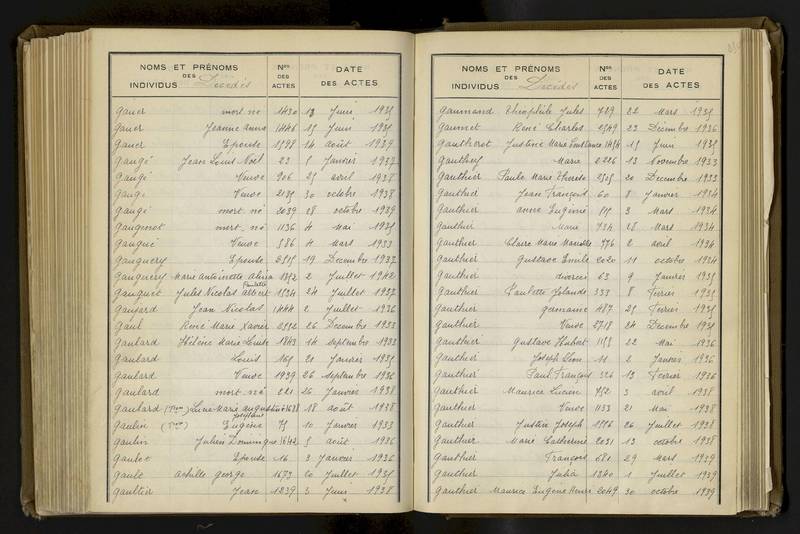 NOMS ET PRÉNOMS DES INDIVIDUS Décédés Nos DES ACTES DATE DES ACTES
Gauer mort né 1430 13 Juin 1935
Gauer Jeanne Anna 1448 15 Juin 1935
Gauer Epouse 1598 14 août 1939
Gaugé Jean Louis Noël 23 5 Janvier 1937
Gaugé Veuve 906 25 avril 1938
Gaugé Veuve 2135 30 octobre 1938
Gaugé mort né 2039 28 octobre 1939
Gaugenot mort né 1136 4 Mai 1935
Gaugué Veuve 586 4 Mars 1933
Gauguery Epouse 2515 19 Décembre 1937
Gauguery Marie Antoinette Alina 1352 2 Juillet 1942
Gauguet Jules Nicolas Albert 1534 24 Juillet 1937
Gaujard Jean Nicolas 1444 2 Juillet 1936
Gaul René Marie Xavier 2552 26 Décembre 1933
Gaulard Hélène Marie Louise 1843 14 septembre 1933
Gaulard Louis 165 21 Janvier 1935
Gaulard Veuve 1939 26 septembre 1936
Gaulard mort né 221 26 Janvier 1938
Gaulard Marie 1638 18 août 1938
Gaulin Eugène 75 10 Janvier 1933
Gaulin Julien Dominique 1642 5 août 1936
Gaulot Epouse 16 3 Janvier 1936
Gault Achille George 1673 20 Juillet 1935
Gaultier Jean 1239 3 Juin 1938
NOMS ET PRÉNOMS DES INDIVIDUS Décédés Nos DES ACTES DATE DES ACTES
Gaumand Théophile Jules 729 22 Mars 1935
Gaumet René Charles 2549 23 Décembre 1936
Gautherot Justine Marie Constance 1454 15 Juin 1935
Gauthey Marie 2226 13 Novembre 1933
Gauthier Paule Marie Thérèse 2525 20 Décembre 1933
Gauthier Jean François 60 8 Janvier 1934
Gauthier Anne Eugénie 515 3 Mars 1934
Gauthier Marie 734 28 Mars 1934
Gauthier Claire Marie 776 2 avril 1934
Gauthier Gustave Emile 2020 11 octobre 1934
Gauthier divorcée 63 9 Janvier 1935
Gauthier Paulette Yolande 333 8 Février 1935
Gauthier Germaine 487 25 Février 1935
Gauthier Veuve 2718 24 Décembre 1935
Gauthier Gustave Hubert 1158 22 Mai 1936
Gauthier Joseph Léon 11 2 Janvier 1936
Gauthier Paul François 326 13 Février 1936
Gauthier Maurice Lucien 752 3 avril 1938
Gauthier Veuve 1133 21 Mai 1938
Gauthier Justin Joseph 1526 26 Juillet 1938
Gauthier Marie Catherine 2031 13 octobre 1938
Gauthier François 681 29 Mars 1939
Gauthier Julia 1340 1 Juillet 1939
Gauthier Maurice Eugène Henri 2049 30 octobre 1939